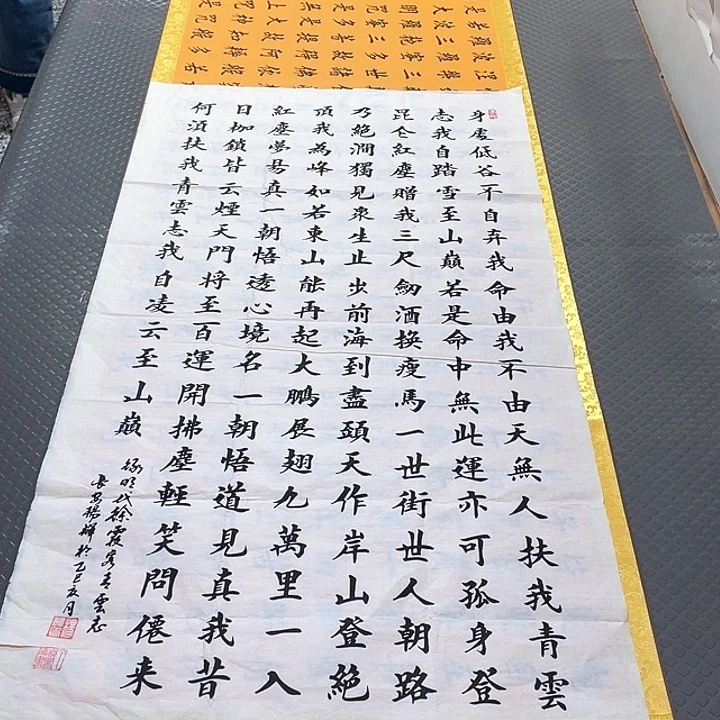 身處低谷不自弃我命由我不由天無人扶我青雲
志我自踏雪至山巔若是命中無此運亦可孤身登
昆仑紅塵贈我三尺劒酒換瘦馬一世街世人朝路
乃絕澗獨見衆生止步前海到盡頭天作岸山登絕
頂我為峰如若東山能再起大鵬展翅九萬里一入
紅塵夢易真一朝悟透心境名一朝悟道見真我昔
日枷鎖皆云煙天門將至百運開拂塵輕笑問僊来
何須扶我青雲志我自凌云至山巔
錄明代徐霞客青雲志
於乙巳夏月